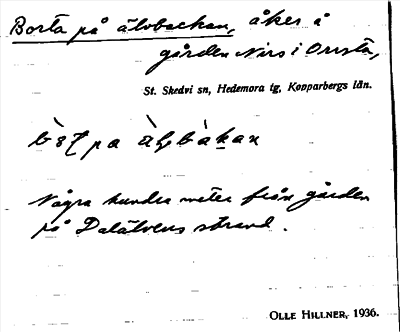 Borta på älvbackan, åker å
gården Nirs i Orrsta,
St. Skedvi sn, Hedemora tg, Kopparbergs län.
Några hundra meter från gården
på Dalälvens strand.
OLLE HILLNER, 1936.